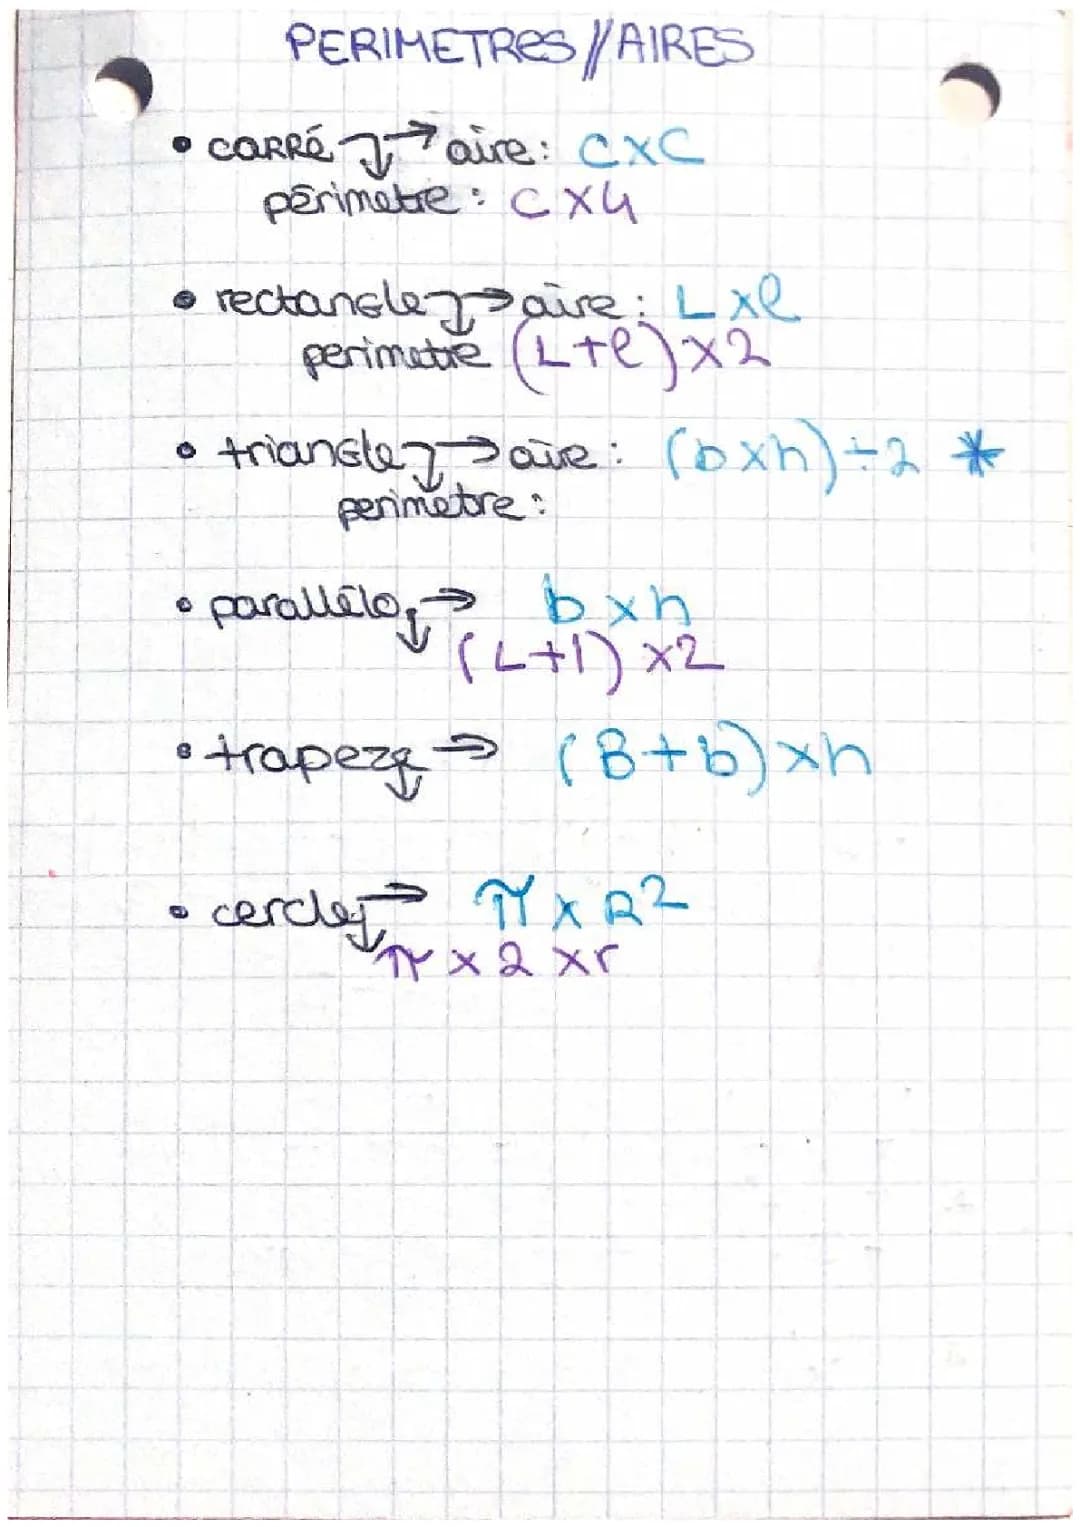 PERIMETRes // AIRES
• CARRé → aire: C×C
périmetre: C×4
• rectangle → aire: L×l
perimetre (L+l)×2
• triangle → aire: (b×h)÷2 *
perimètre:
• parallélo → b×h
(L+l)×2
• trapeze → (B+b)×h
• cercle → π×R²
π×2×r